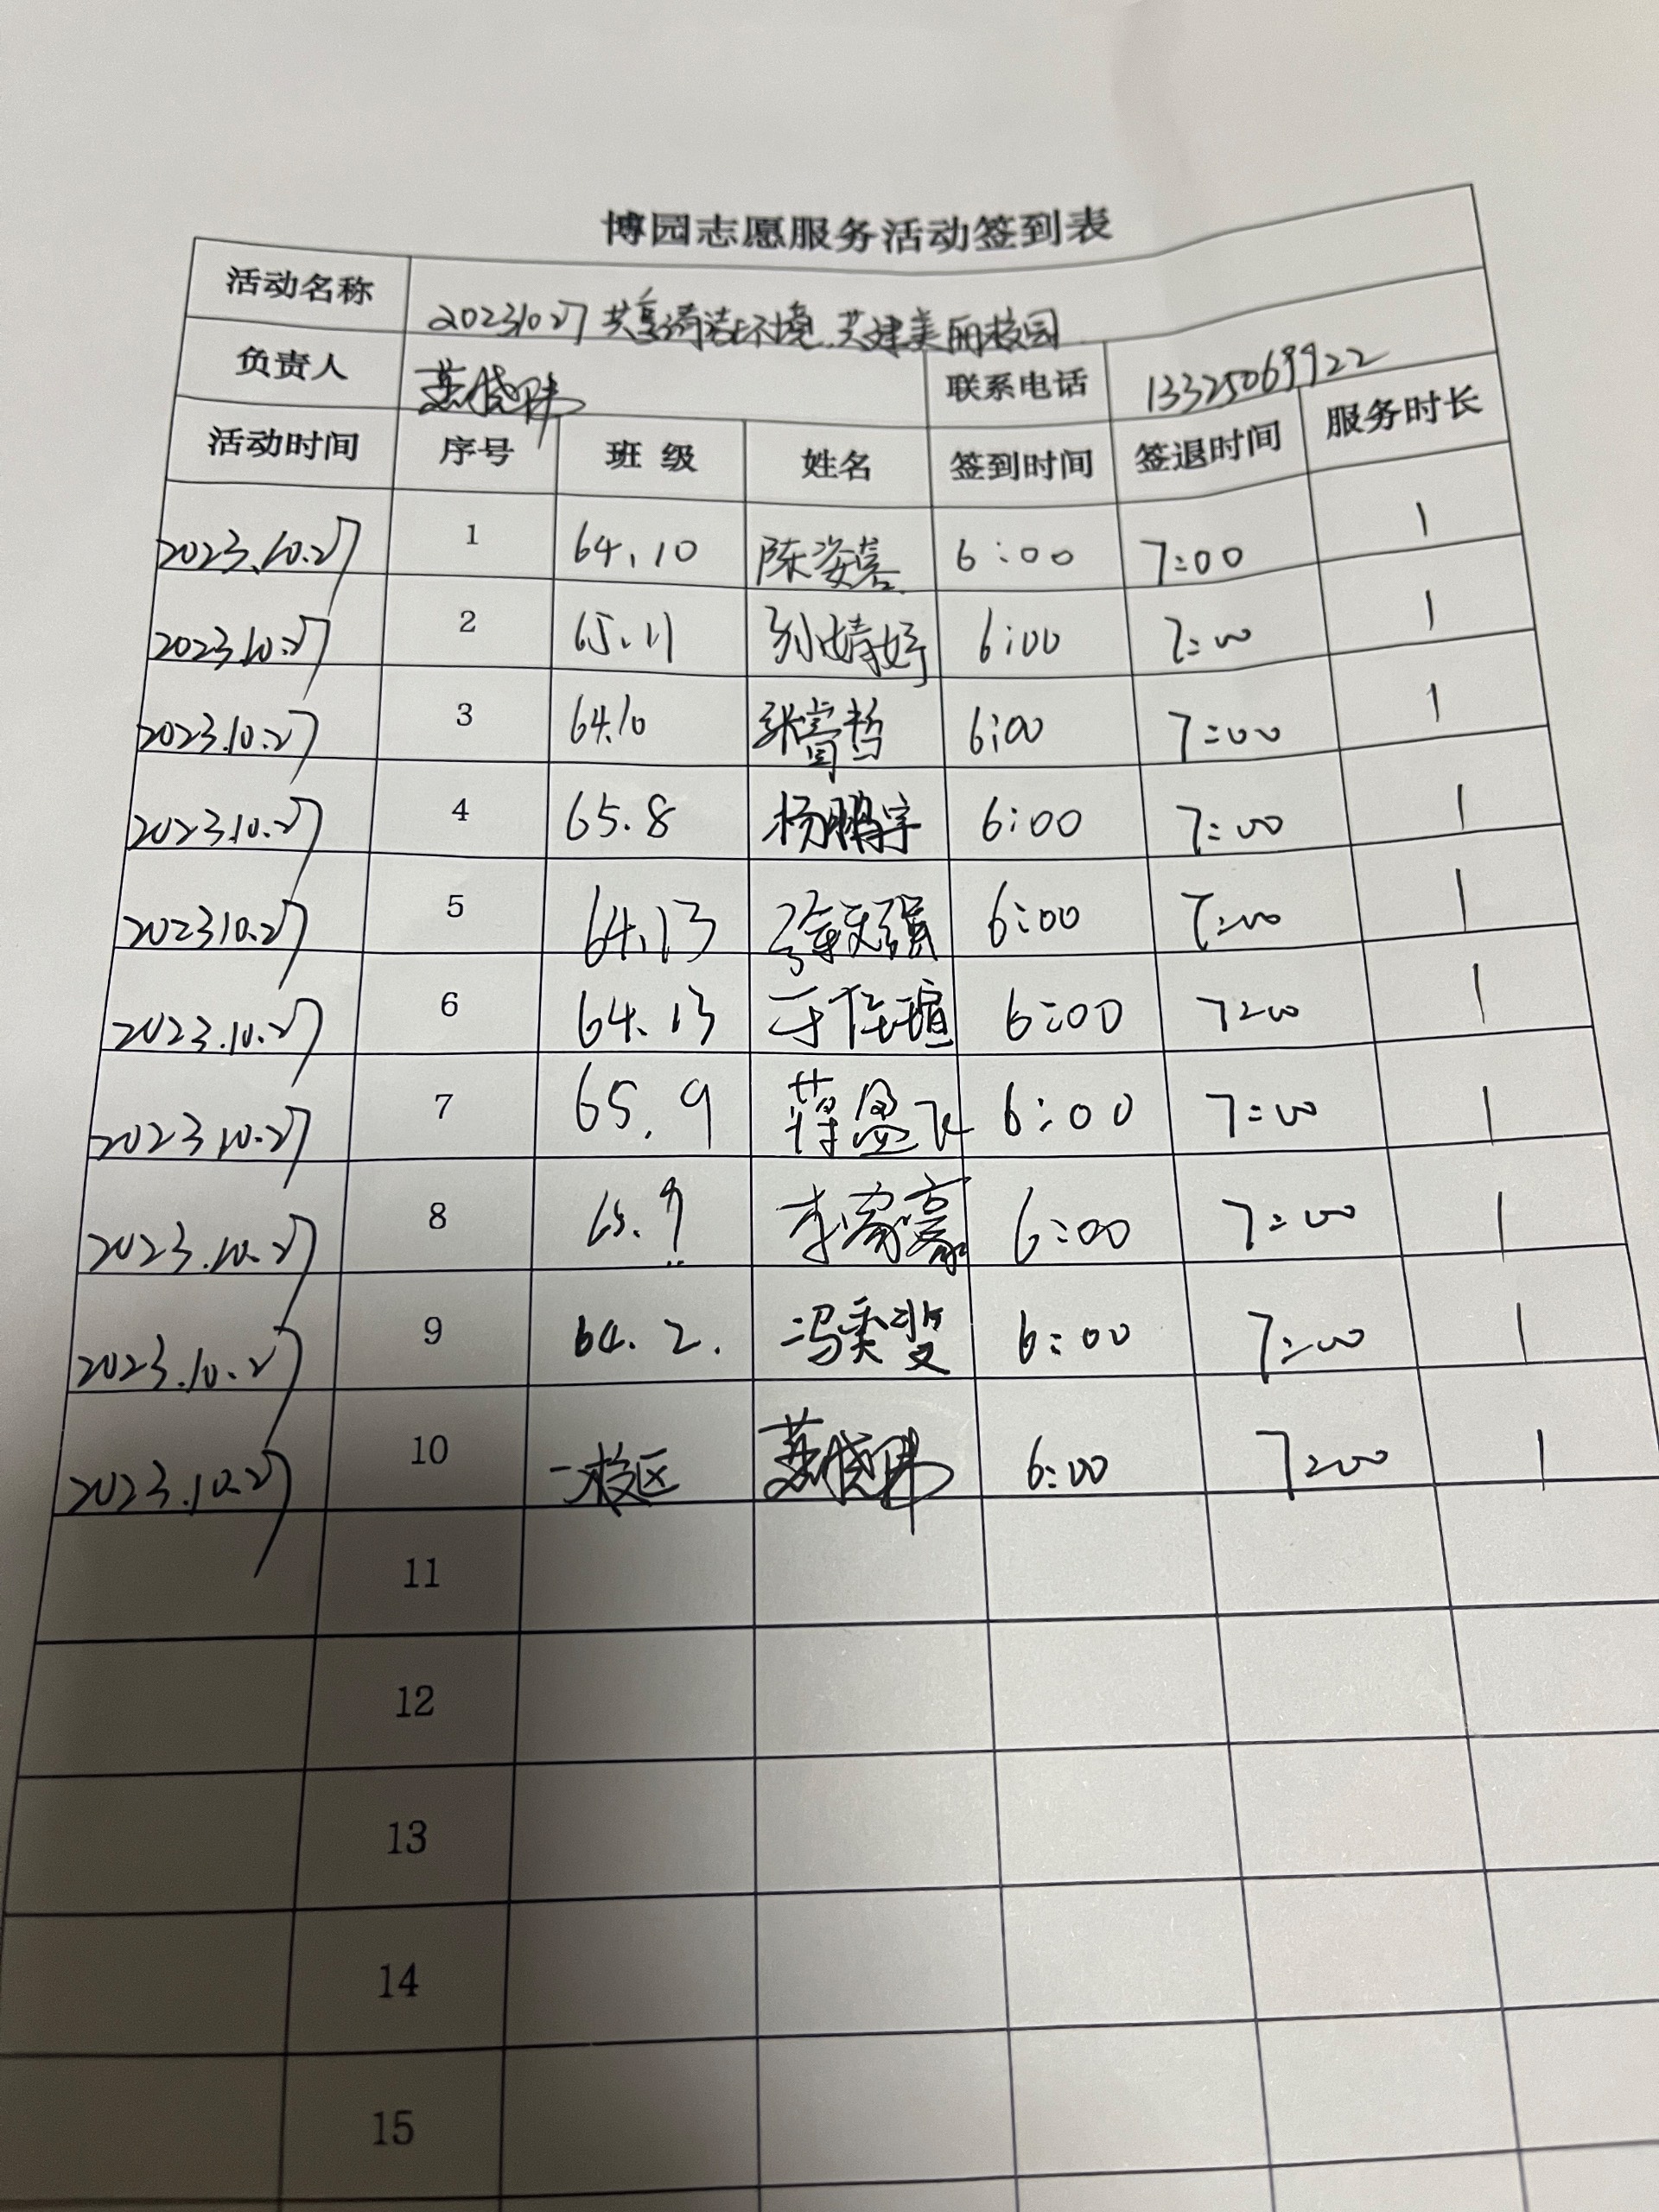 博园志愿服务活动签到表
活动名称 20231027 共享清洁环境.共建美丽校园
负责人 联系电话 13325069922
活动时间 序号 班级 姓名 签到时间 签退时间 服务时长
2023.10.27 1 64.10 陈姿蓉 6:00 7:00 1
2023.10.27 2 65.11 孙婧妤 6:00 7:00 1
2023.10.27 3 64.10 6:00 7:00 1
2023.10.27 4 65.8 杨鹏宇 6:00 7:00 1
2023.10.27 5 64.13 6:00 7:00 1
2023.10.27 6 64.13 6:00 7:00 1
2023.10.27 7 65.9 蒋盈飞 6:00 7:00 1
2023.10.27 8 65.9 李家豪 6:00 7:00 1
2023.10.27 9 64.2. 6:00 7:00 1
2023.10.27 10 一校区 6:00 7:00 1
11
12
13
14
15